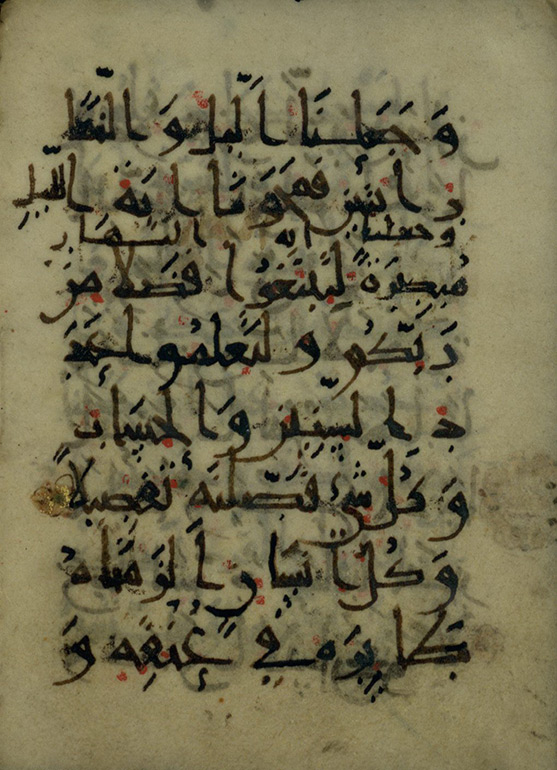 وَجَعَلنَا الَّيلَ وَالنَّهَا
رَ ايَتَينِ فَمَحَونَا ايَةَ اللَّيلِ
وجعلنا ايه النهار
مُبصِرَةً لِّتَبتَغُوا فَضلًا مِن
رَبِّكُم وَلِتَعلَمُوا عَدَ
دَ السِّنِينَ وَالحِسَابَ
وَكُلَّ شَيءٍ فَصَّلنَه تَفصِيلًا
وَكُلَّ انسَانٍ الزَمنَاه
طَائِرَه فِي عُنُقِهِ وَ